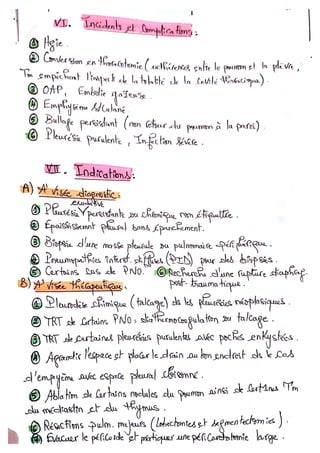 VI. Incidents et Complications :
① Hgie.
② Conversion en thoracotomie (adhérences entre le poumon et la plèvre,
Tm empêchant l'inspect de la totalité de la cavité thoracique).
③ OAP, Embolie gazeuse.
④ Emphysème s/cutané.
⑤ Bullage persistant (non retour du poumon à la paroi).
⑥ Pleurésie purulente, Infection sévère.
VII. Indications :
A) A' visée diagnostic :
① Pleurésie exsudative persistante ou chronique non étiquetée.
② Épaississement pleural sans épanchement.
③ Biopsie d'une masse pleurale ou pulmonaire périphérique.
④ Pneumopathies interst. diffuses (PID) pour des biopsies.
⑤ Certains cas de PNO. ⑥ Recherche d'une rupture diaphrag
post-traumatique.
B) A' visée thérapeutique :
① Pleurodèse chimique (talcage) de les pleurésies néoplasiques.
② TRT de certains PNO : thermocoagulation ou talcage.
③ TRT de certaines pleurésies purulentes avec poches enkystées.
④ Agrandir l'espace et placer le drain au bon endroit de le cas
d'empyème avec espace pleural cloisonné.
⑤ Ablation de certains nodules du poumon ainsi de certaines Tm
du médiastin et du thymus.
⑥ Résections pulm. majeurs (lobectomies et segmentectomies).
⑦ Évacuer le péricarde et pratiquer une péricardotomie large.